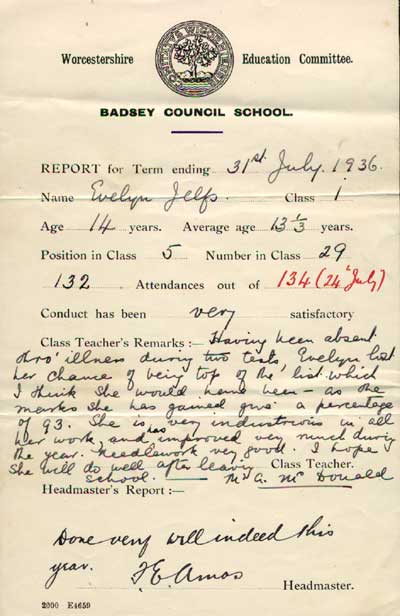 Worcestershire Education Committee.
BADSEY COUNCIL SCHOOL.
REPORT for Term ending 31st July. 1936.
Name Evelyn Jelfs. Class 1
Age 14 years. Average age 13 1/3 years.
Position in Class 5 Number in Class 29
132 Attendances out of 134 (24 July)
Conduct has been very satisfactory
Class Teacher's Remarks :— Having been absent
thro' illness during two tests, Evelyn lost
her chance of being top of the list which
I think she would have been – as the
marks she has gained give a percentage
of 93. She is very industrious in all
her work, and has improved very much during
the year. Needlework very good. I hope
she will do well after leaving Class Teacher.
school. McDonald
Headmaster's Report :—
Done very well indeed this
year. Amos
Headmaster.
2000 E4659